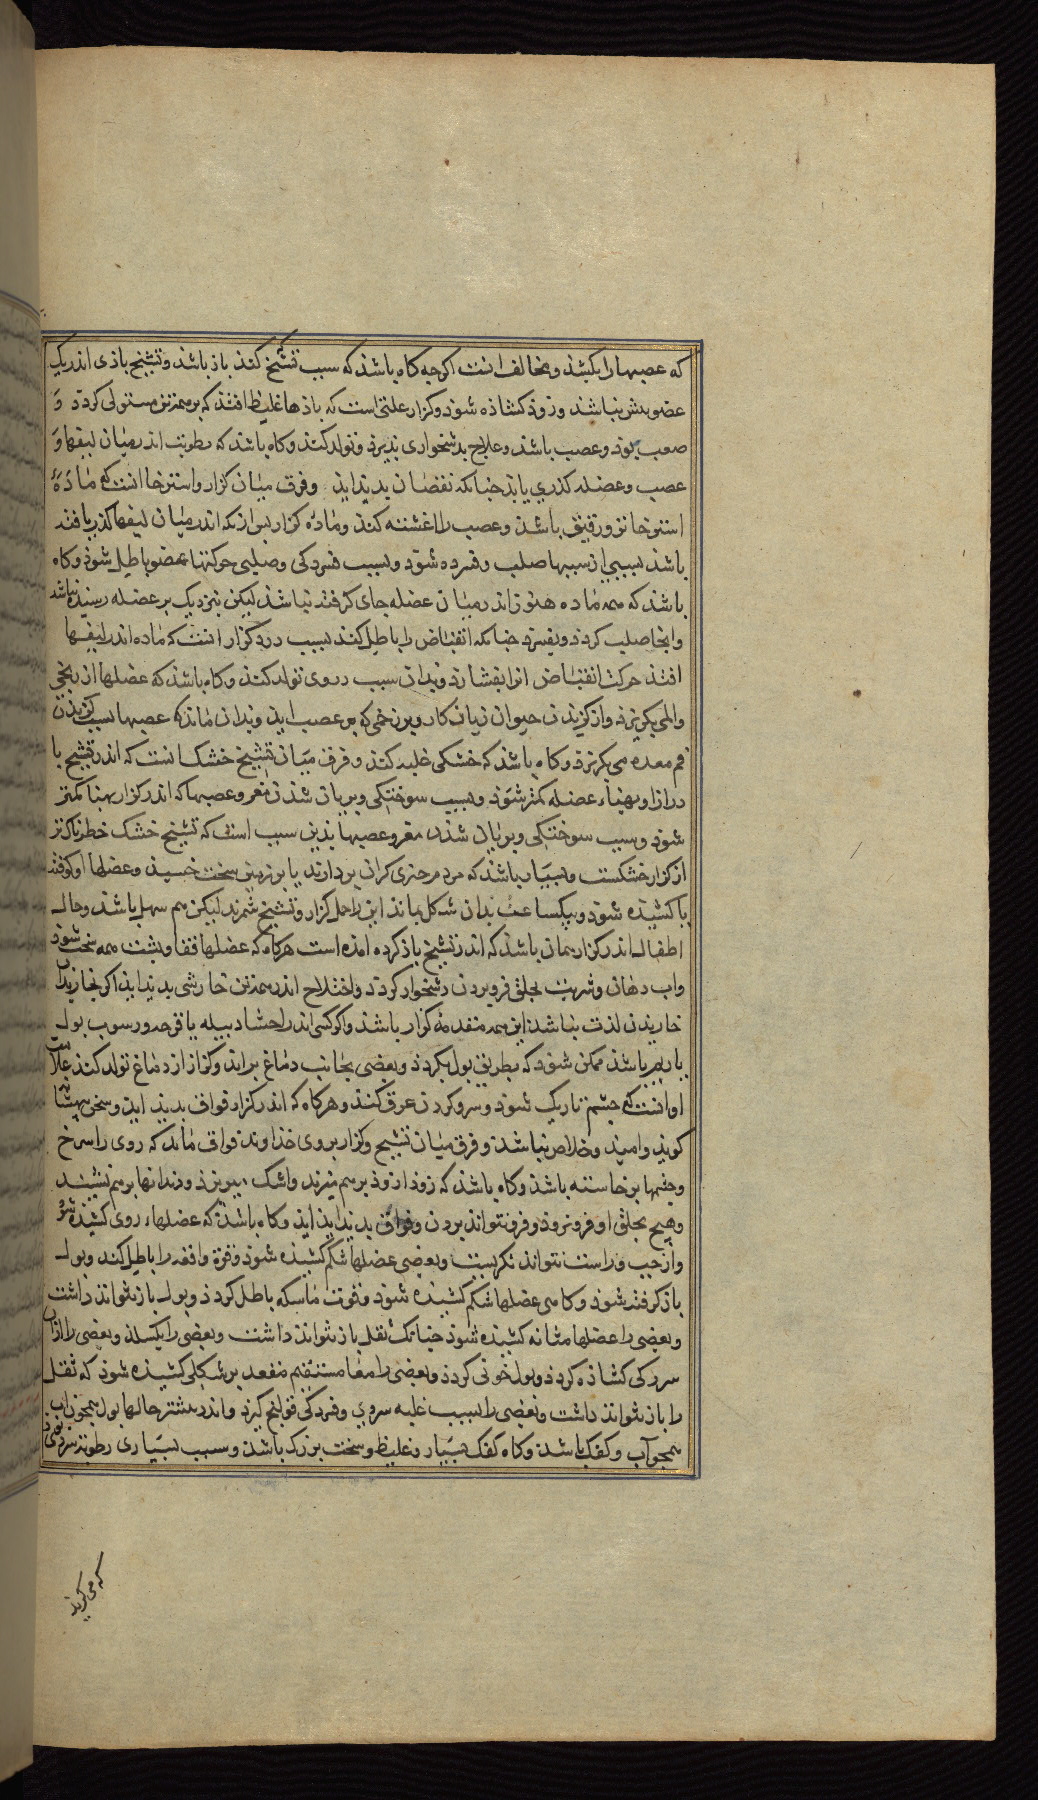 که عصبها را بکشذ و مخالف انست اکرجه کاه باشذ که سبب تشنج کنذ باذ باشذ و تشنج باذی اندر یک
عضو بیش نباشذ و زوذ کشاذه شوذ و کزاز علتی است که باذها غلیظ افتذ که بر همه تن مستولی کردذ و
صعب بوذ و عصب باشذ و علاج بدشخواری پذیرذ و تولد کنذ و کاه باشذ که رطوبت اندر میان لیفها و
عصب و عضله کذری یابذ جنانکه نقصان بدیذ ایذ و فرق میان کزاز و استرخا انست که ماده
استرخا تر و رقیق باشذ و عصب را اغشته کنذ و ماده کزاز بس ازانکه اندر میان لیفها کذر یافته
باشذ بسببی از سببها صلب و فسرده شوذ و بسبب فسردکی و صلبی حرکتها عضو باطل شوذ و کاه
باشذ که همه ماده هنوز اندر میان عضله جای کرفته نباشذ لیکن نزدیک بر عضله رسیذه باشذ
و انجا صلب کردذ و بفسرذ جنانکه انقباض را باطل کنذ بسبب درد کزاز انست که ماده اندر لیفها
افتذ حرکت انقباض انرا بفشارذ و بذان سبب دروی تولد کنذ و کاه باشذ که عضلها از رنجی
و المی بکریزذ و از کزیذن حیوان زیان کار و بر زخمی که بر عصب ایذ و بذان ماند که عصبها بسبب کزیذن
فم معده می بکریزذ و کاه باشذ که خشکی غلبه کنذ و فرق میان تشنج خشک انست که اندر تشنج با
درازا و بهناء عضله کمتر شوذ و بسبب سوختکی و بریان شذن مغز و عصبها که اندر کزاز بهنا کمتر
شوذ و سبب سوختکی و بریان شذن مغز و عصبها بذین سبب است که تشنج خشک خطرناکتر
از کزاز خشکست و بسیار باشذ که مردم جیزی کران بردارند یا بر زمین سخت خسبند و عضلها او کوفته
یا کشیذه شوذ و یکساعت بذان شکل بماند این را جمله کزاز و تشنج شمرند لیکن هم سهل باشذ و حال
اطفال اندر کزاز همان باشذ که اندر تشنج یاذ کرده امده است هرکاه که عضلها قفا و بشت همه سخت شوذ
واب دهان و شربت بحلق فرو بردن دشخوار کردذ و اختلاج اندر همه تن خارشی بدیذ ایذ اکر بخارذ از
خاریذن لذت نیابذ این همه مقدمه کزاز باشذ و اکر کسی اندر احشا دبیله یا قرحه و رسوب بول
یا ریم باشذ ممکن شوذ که بطریق بول بکردذ و بعضی بجانب دماغ براید و کزاز از دماغ تولد کنذ علامت
او انست که جشم تاریک شوذ و سر و کردن عرق کنذ و هرکاه که اندر کزاز فواق بدیذ ایذ و سخن بریشان
کویذ و امیذ و خلاص نباشذ و فرق میان تشنج و کزاز بروی خذاوند فواق ماند که روی را سرخ
و جشمها بر خاسته باشذ و کاه باشذ که زوذ ازوذ بر هم میزند و اشک میریزذ و دندانها بر هم نشیند
و هیج بحلق او فرو نروذ و فرو نتواند بردن و فواق بدیذ ایذ و کاه باشذ که عضلهاء روی کشیذه شوذ
و از جب و راست نتواند نکریست و بعضی عضلها شکم کشیذه شوذ و قوة دافعه را باطل کند و بول
باز کرفته شوذ و کاهی عضلها شکم کشیذه شوذ و قوت ماسکه باطل کردذ و بول باز نتواند داشت
و بعضی را عضلها مثانه کشیذه شوذ جنانک ثقل باز نتواند داشت و بعضی را بکسلذ و بعضی را ازان
سر رکی کشاذه کردذ و بول خونی کردذ و بعضی را معا مستقیم مقعد بر شکلی کشیذه شوذ که ثقل
را باز نتواند داشت و بعضی را بسبب غلبه سردی و فسردکی قولنج کیرذ و اندر بیشتر حالها بول همجون اب
همجو آب و کفک باشذ و کاه کفک بسیار و غلیظ و سخت بزرک باشذ و سبب بسیاری رطوبت سرد
که می کوید